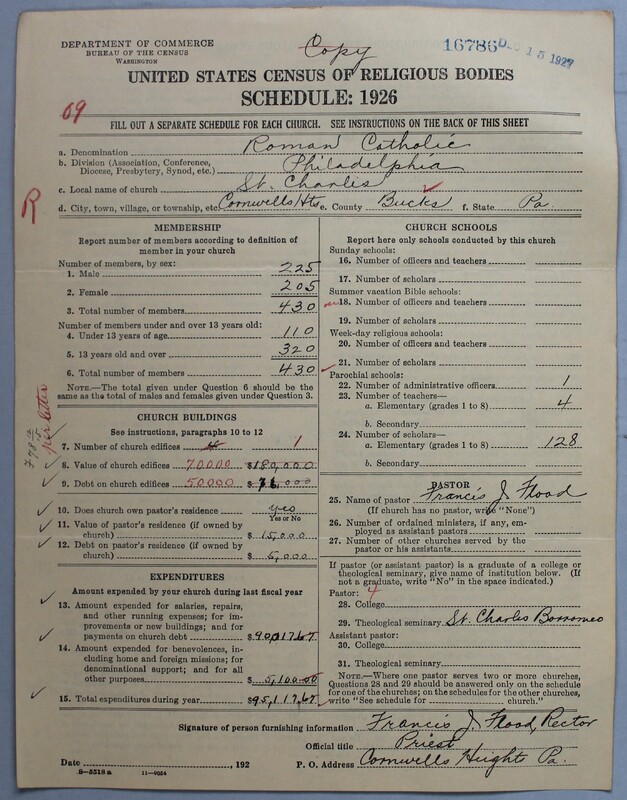 DEPARTMENT OF COMMERCE
BUREAU OF THE CENSUS
WASHINGTON
Copy
16786 DEC 15 1927
UNITED STATES CENSUS OF RELIGIOUS BODIES
SCHEDULE: 1926
69
FILL OUT A SEPARATE SCHEDULE FOR EACH CHURCH. SEE INSTRUCTIONS ON THE BACK OF THIS SHEET
a. Denomination Roman Catholic
b. Division (Association, Conference, Diocese, Presbytery, Synod, etc.) Philadelphia
c. Local name of church St. Charles
R
d. City, town, village, or township, etc. Cornwells Hts e. County Bucks f. State Pa.
MEMBERSHIP
Report number of members according to definition of
member in your church
Number of members, by sex:
1. Male 225
2. Female 205
3. Total number of members 430
Number of members under and over 13 years old:
4. Under 13 years of age 110
5. 13 years old and over 320
6. Total number of members 430
NOTE.—The total given under Question 6 should be
same as the total of males and females given under Question 3.
CHURCH BUILDINGS
See instructions, paragraphs 10 to 12
per letter
7. Number of church edifices 1
8. Value of church edifices 70000 $180,000
9. Debt on church edifices 50000 $ ,000
10. Does church own pastor's residence yes
Yes or No
11. Value of pastor's residence (if owned by
church) $ 15,000
12. Debt on pastor's residence (if owned by
church) $ 5,000
EXPENDITURES
Amount expended by your church during last fiscal year
13. Amount expended for salaries, repairs,
and other running expenses; for im-
provements or new buildings; and for
payments on church debt $90,017.67
14. Amount expended for benevolences, in-
cluding home and foreign missions; for
denominational support; and for all
other purposes $ 5,100.00
15. Total expenditures during year $95,117.67
CHURCH SCHOOLS
Report here only schools conducted by this church
Sunday schools:
16. Number of officers and teachers
17. Number of scholars
Summer vacation Bible schools:
18. Number of officers and teachers
19. Number of scholars
Week-day religious schools:
20. Number of officers and teachers
21. Number of scholars
Parochial schools:
22. Number of administrative officers 1
23. Number of teachers—
a. Elementary (grades 1 to 8) 4
b. Secondary
24. Number of scholars—
a. Elementary (grades 1 to 8) 128
b. Secondary
PASTOR
25. Name of pastor Francis J. Flood
(If church has no pastor, write "None")
26. Number of ordained ministers, if any, em-
ployed as assistant pastors
27. Number of other churches served by the
pastor or his assistants
If pastor (or assistant pastor) is a graduate of a college or
theological seminary, give name of institution below. (If
not a graduate, write "No" in the space indicated.)
Pastor: 4
28. College
29. Theological seminary St. Charles Borromeo
Assistant pastor:
30. College
31. Theological seminary
NOTE.—Where one pastor serves two or more churches,
Questions 28 and 29 should be answered only on the schedule
for one of the churches; on the schedules for the other churches,
write "See schedule for church."
Signature of person furnishing information Francis J. Flood, Rector
Official title Priest
Date , 192 P. O. Address Cornwells Heights Pa.
8-5518 a 11-9054